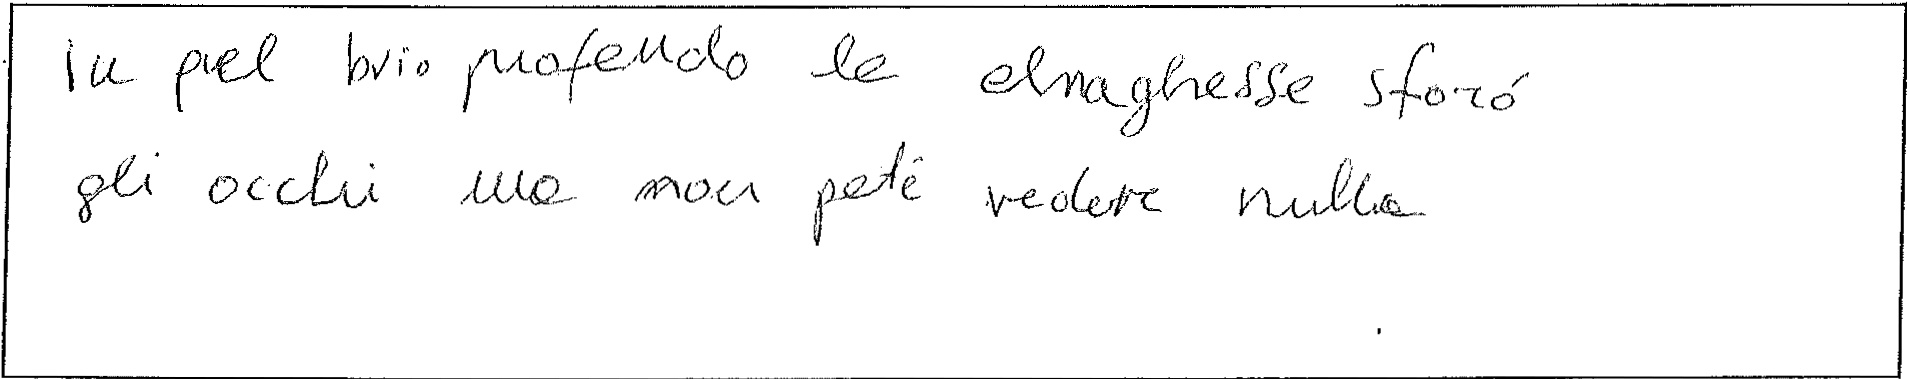 In quel brio profondo la elmaghesse sforzó
gli occhi ma non poté vedere nulla